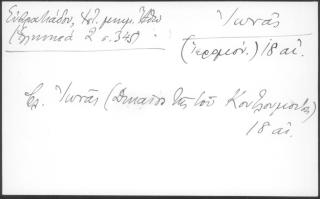 Εὐστρατιάδου, Ἁγ. μνημ. Ἄθω
(Ἑλληνικά 2 σ. 345)
Ἰωνᾶς
(ἱερομόν.) 18 αἰ.
Ἰωνᾶς (Δικαῖος τῆς τοῦ Κουτλουμουσίου)
18 αἰ.